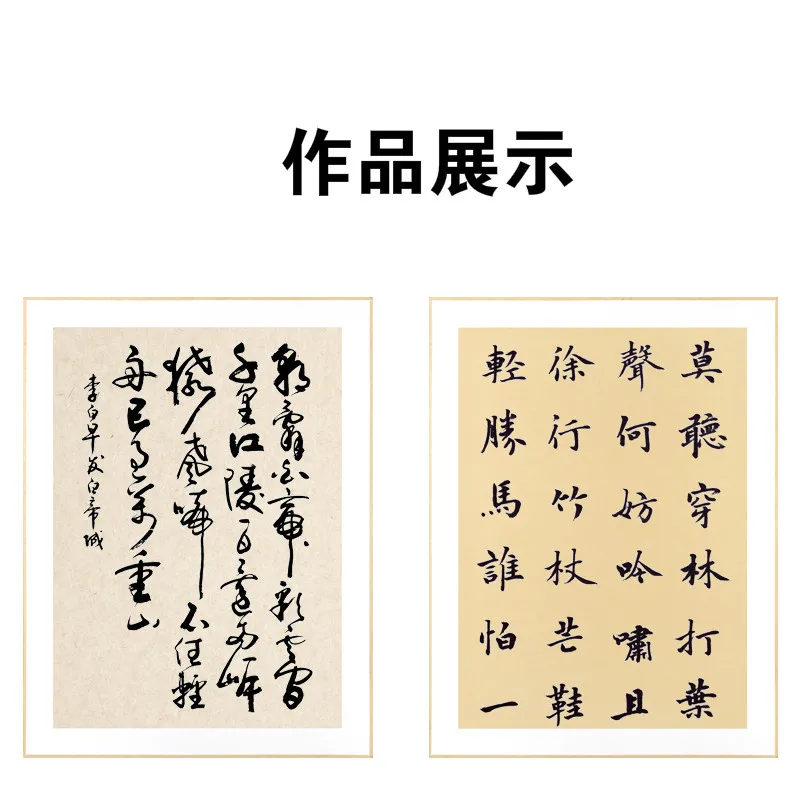 作品展示
朝辭白帝彩雲間
千里江陵一日還兩岸
猿聲啼不住輕
舟已過萬重山
李白早发白帝城
莫聽穿林打葉
聲何妨吟嘯且
徐行竹杖芒鞋
輕勝馬誰怕一